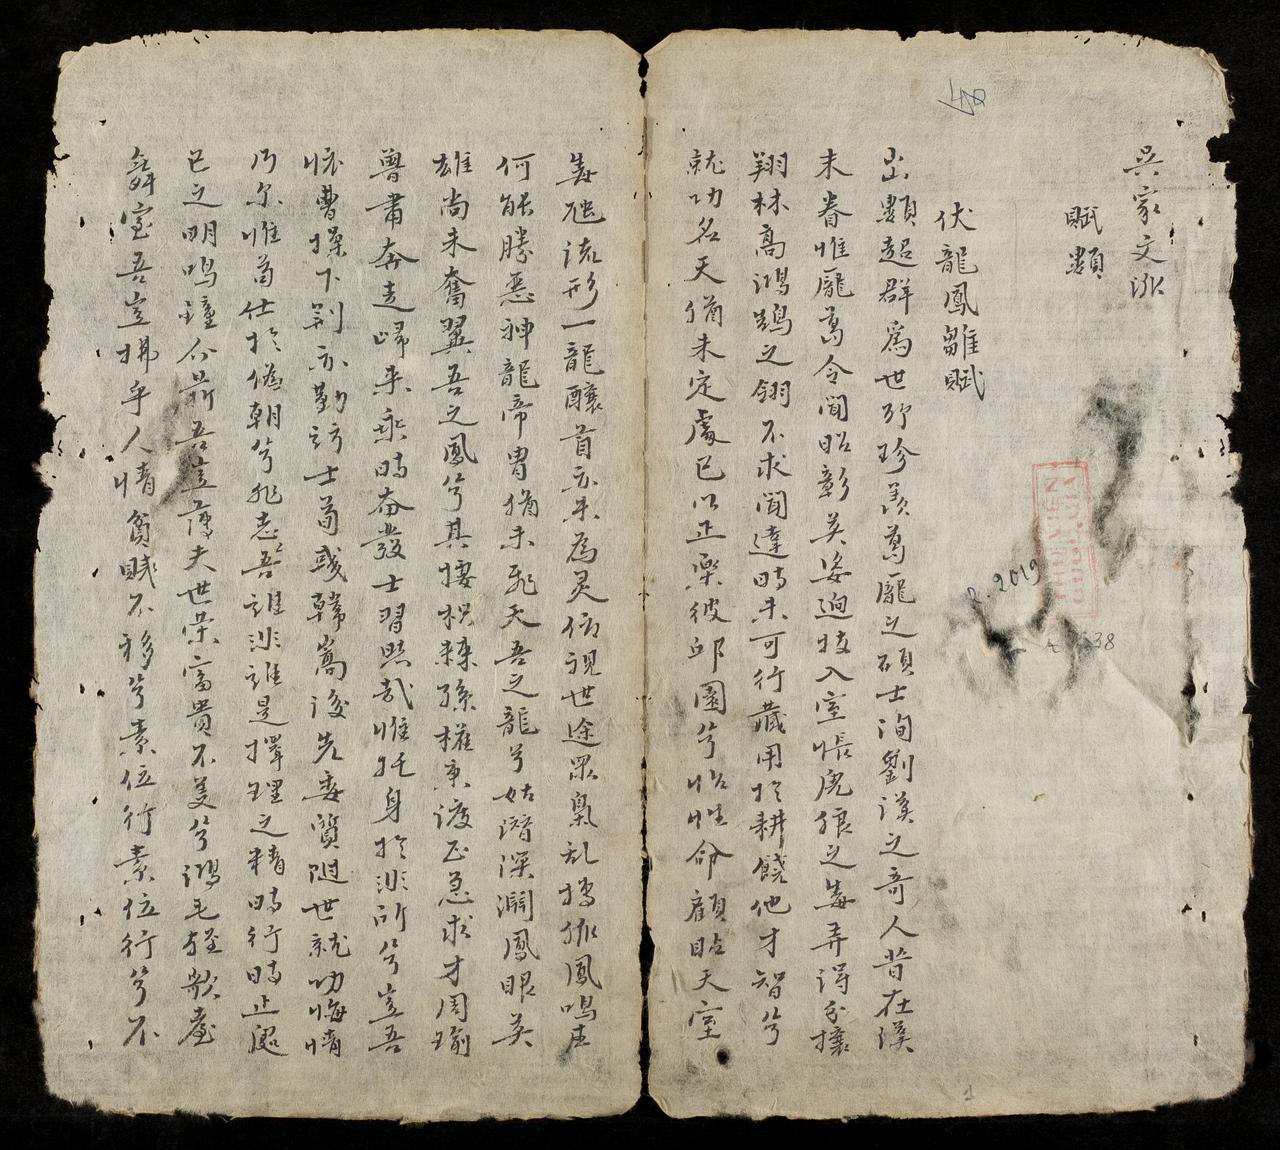 吳家文派
賦類
伏龍鳳雛賦
出類超群為世所珍羨葛龐之碩士洵劉漢之奇人昔在漢
末眷惟龐葛令聞昭彰英姿迥拔入室悵虎狼之毒弄得各攘
翔林高鴻鵠之翎不求聞達時未可行藏用於耕饒他才智兮
就功名天猶未定處已以正樂彼邱園兮怡性命顧眙天室
毒虺流形一龍釀首亦未為灵俯視世途眾梟乱搏孤鳳鳴
何能勝惡神龍帝胄猶未飛天吾之龍兮姑潛深淵鳳眼英
雄尚未奮翼吾之鳳兮其棲枳棘孫權東渡正急求才周瑜
魯肅奔走歸來乘時奋發士習熙哉惟托身於非所兮豈吾
懷曹操下荆亦勤訪士荀彧韓嵩後先委質趨世就功悔情
乃尔惟荀仕於偽朝兮非志吾誰非誰是擇理之精時行時止
已之明鳴鐘介鼎吾豈薄夫世榮富貴不羡兮鴻毛輕歌臺
舞室吾豈拂乎人情貧賤不移兮素位行素位行兮不
48
R. 2019
38
THƯ VIỆN